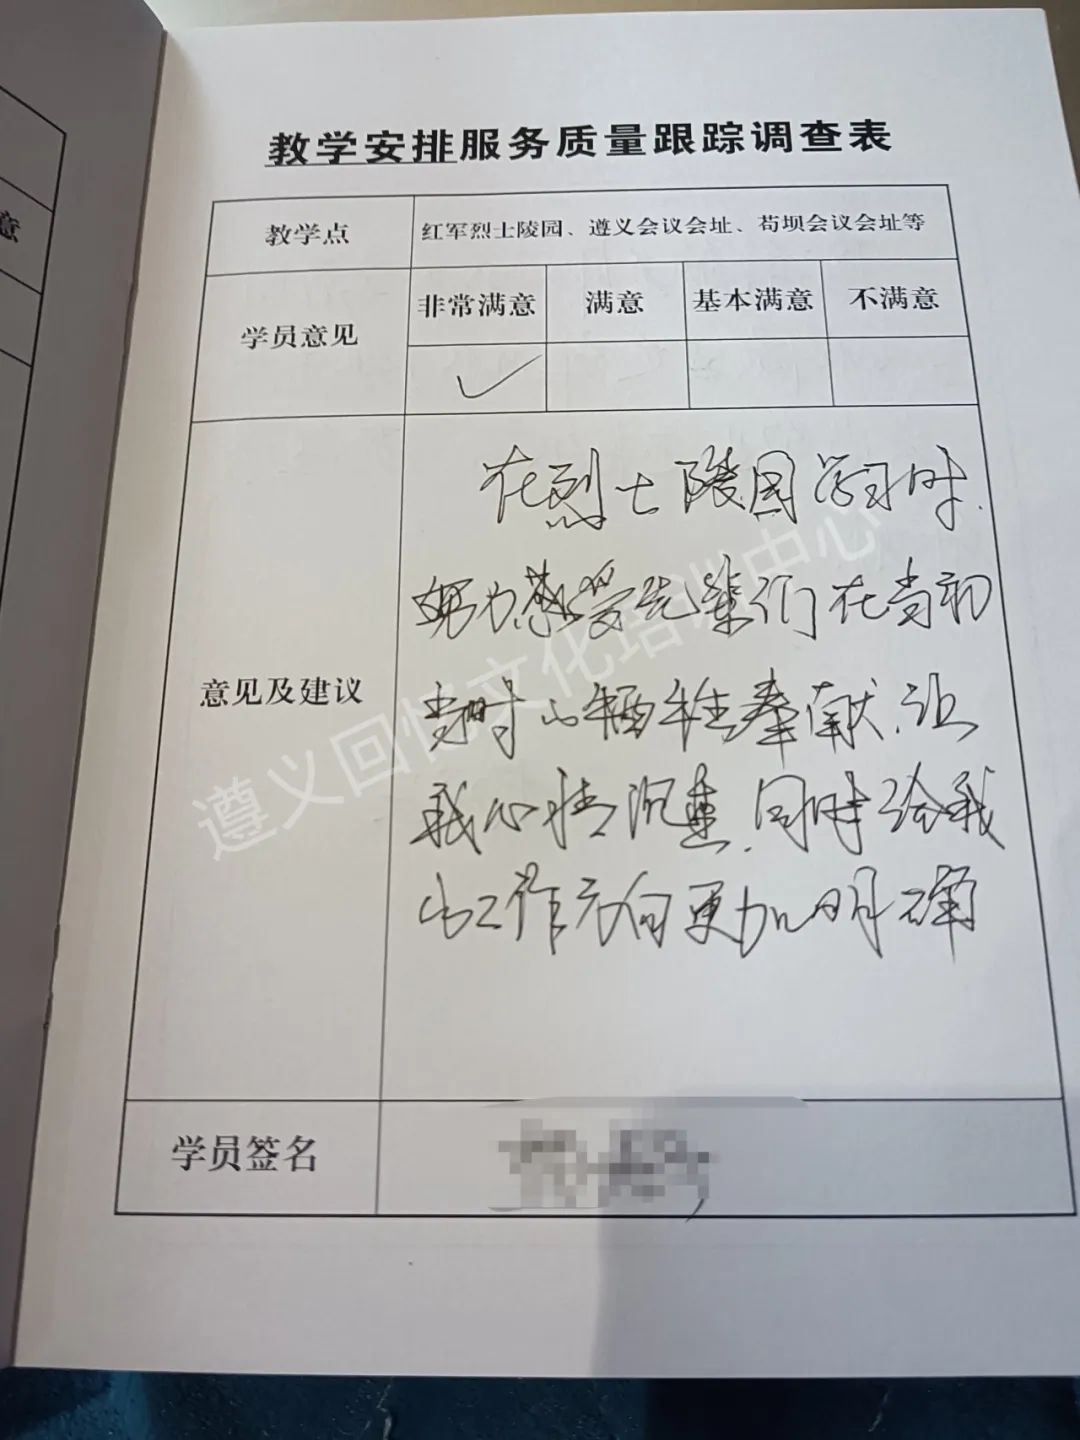 意
教学安排服务质量跟踪调查表
教学点
红军烈士陵园、遵义会议会址、苟坝会议会址等
学员意见
非常满意 满意 基本满意 不满意
✓
意见及建议
在烈士陵园学习时.
努力感受先辈们在当初
当时的牺牲奉献.让
我心情沉重.同时给我
的工作方向更加明确
学员签名
遵义回忆文化培训中心